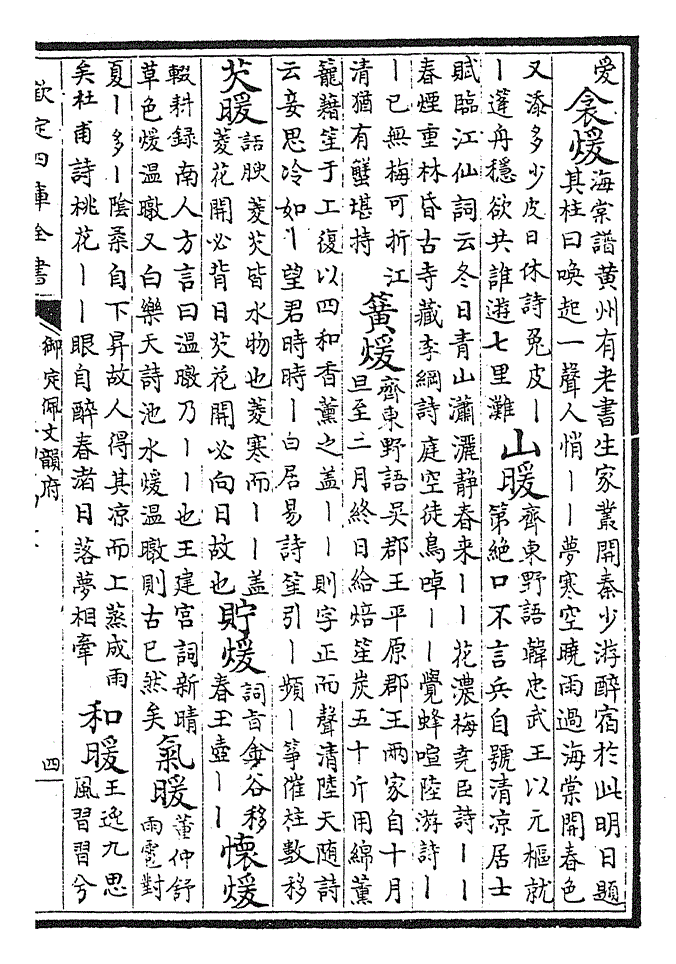 愛衾煖海棠譜黃州有老書生家叢開秦少游醉宿於此明日題
其柱曰喚起一聲人悄丨丨夢寒空曉雨過海棠開春色
又添多少皮日休詩兔皮丨
丨蓬舟穩欲共誰遊七里灘
山暖齊東野語韓忠武王以元樞就
第絶口不言兵自號清凉居士
賦臨江仙詞云冬日青山瀟灑靜春来丨丨花濃梅堯臣詩丨丨
春煙重林昏古寺藏李綱詩庭空徒鳥啅丨丨覺蜂喧陸游詩丨
丨已無梅可折江
清猶有蟹堪持
簧煖齊東野語吳郡王平原郡王兩家自十月
旦至二月終日給焙笙炭五十斤用綿薰
籠藉笙于工復以四和香薰之盖丨丨則字正而聲清陸天随詩
云妾思冷如丨望君時時丨白居易詩笙引丨頻丨箏催柱數移
芡暖語腴菱芡皆水物也菱寒而丨丨盖
菱花開必背日芡花開必向日故也
貯煖詞言金谷移
春玉壺丨丨
懷煖
輟耕録南人方言曰温暾乃丨丨也王建宫詞新晴
草色煖温暾又白樂天詩池水煖温暾則古已然矣
氣暖董仲舒
雨雹對
夏丨多丨陰桑自下昇故人得其凉而上蒸成雨
矣杜甫詩桃花丨丨眼自醉春渚日落夢相牽
和暖王逸九思
風習習兮
欽定四庫全書
御定佩文韻府
四